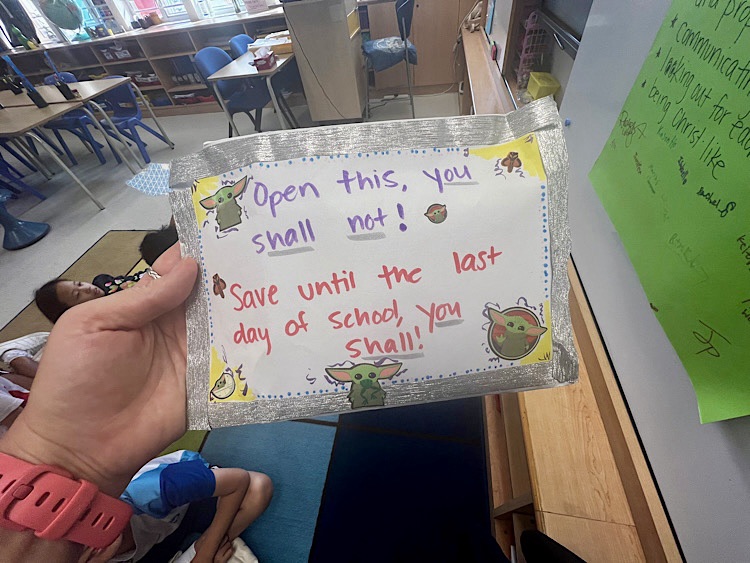 Open this, you
shall not!
Save until the last
day of school, you
shall!
communicati
looking out for
being Christ like
rachel
JP